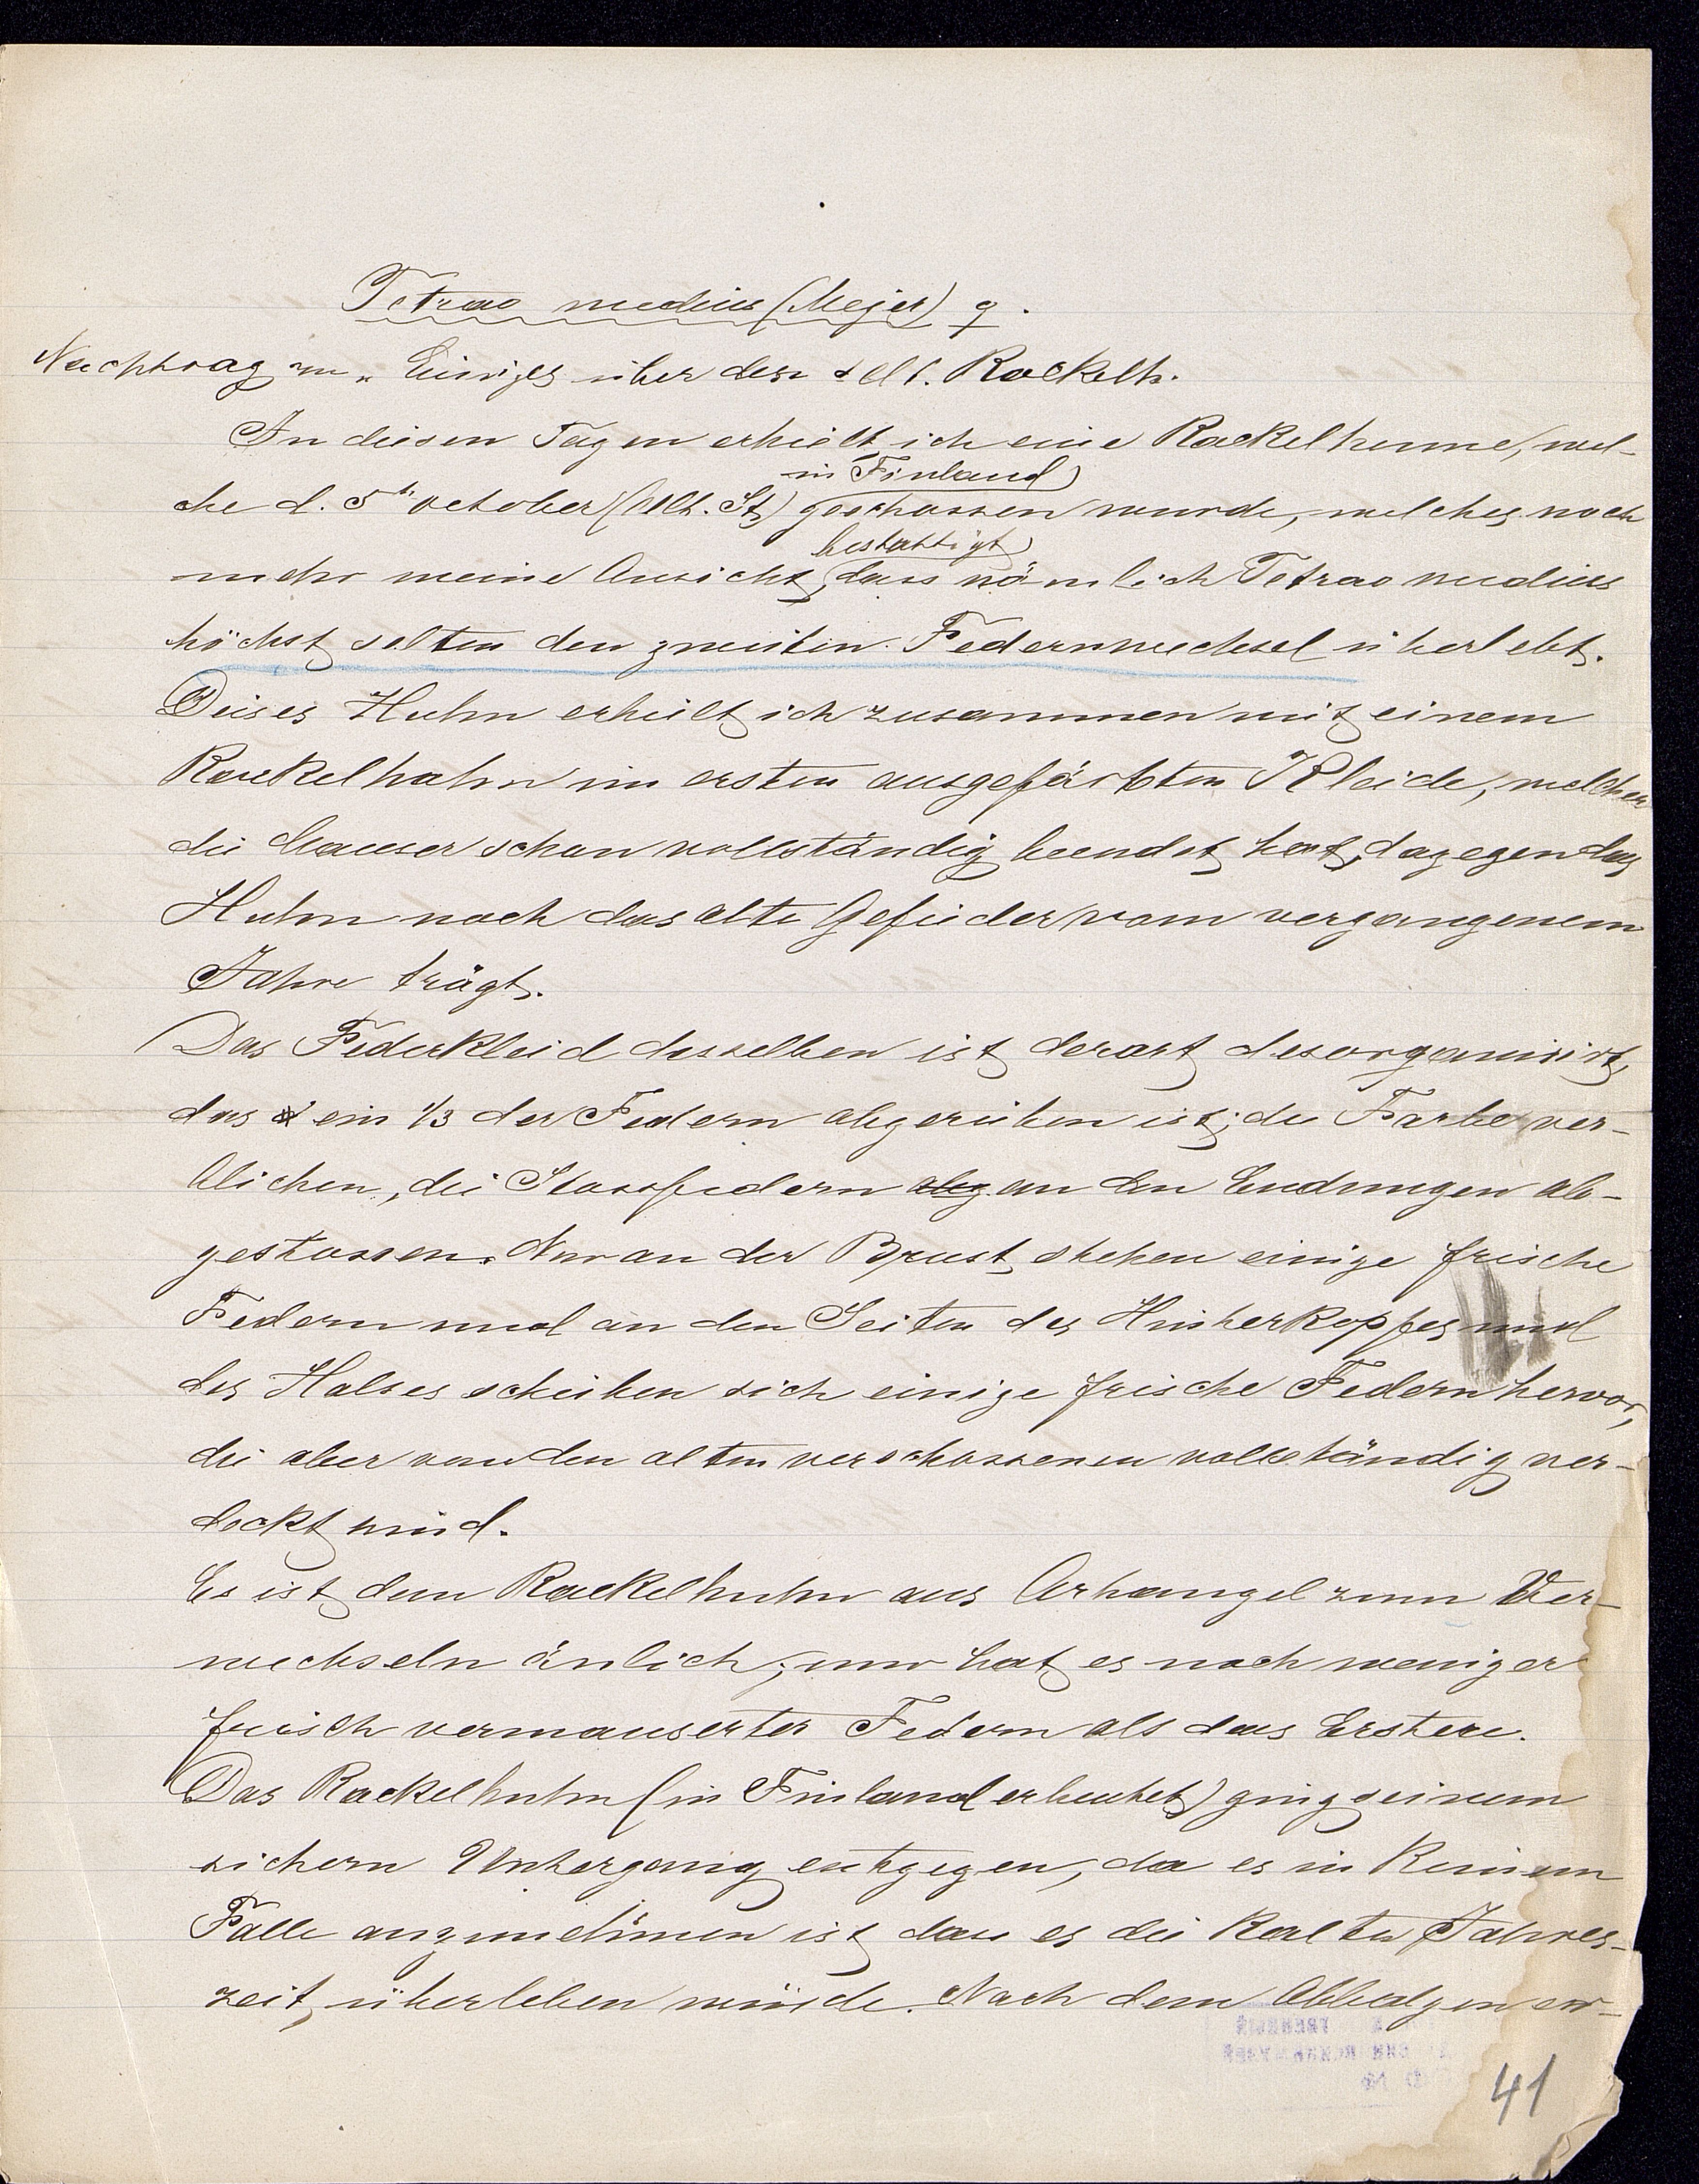 Tetrao medius (Mejer) ♀.
Nachtrag zu „Einiges über den Rackelh.
In diesen Tagen erhielt ich eine Rackelhenne, wel-
che d. 5ᵗ october (Alt. St) in Finland geschossen wurde, welches noch
mehr meine Ansicht, bestattigt dass nämlich Tetrao medius
höchst selten den zweiten Federnwechsel überlebt.
Dieses Huhn erhielt ich zusammen mit einem
Rackelhahn im ersten ausgefärbten Kleide, welcher
die Mauser schon vollständig beendet hat, dagegen das
Huhn noch das alte Gefieder vom vergangenem
Jahre trägt.
Das Federkleid desselben ist derart desorganisirt,
das ein 1/3 der Federn abgerieben ist; die Farbe ver-
blichen, die Stossfedern abg. an den Endungen ab-
gestossen. Nur an der Brust stehen einige frische
Federn und an den Seiten des Hinterkopfes und
des Halses schieben sich einige frische Federn hervor,
die aber von den alten verschossenen vollständig ver-
deckt sind.
Es ist dem Rackelhuhn aus Arhangel zum Ver-
wechseln änlich, nur hat es noch weniger
frisch vermauserter Federn als das Erstere.
Das Rackelhuhn (in Finland erbeutet) ging seinem
sichern Untergang entgegen, da es in Keinem
Falle anzunehmen ist dass es die Kalte Jahres-
zeit überleben würde. Nach dem Abbalgen er-
41